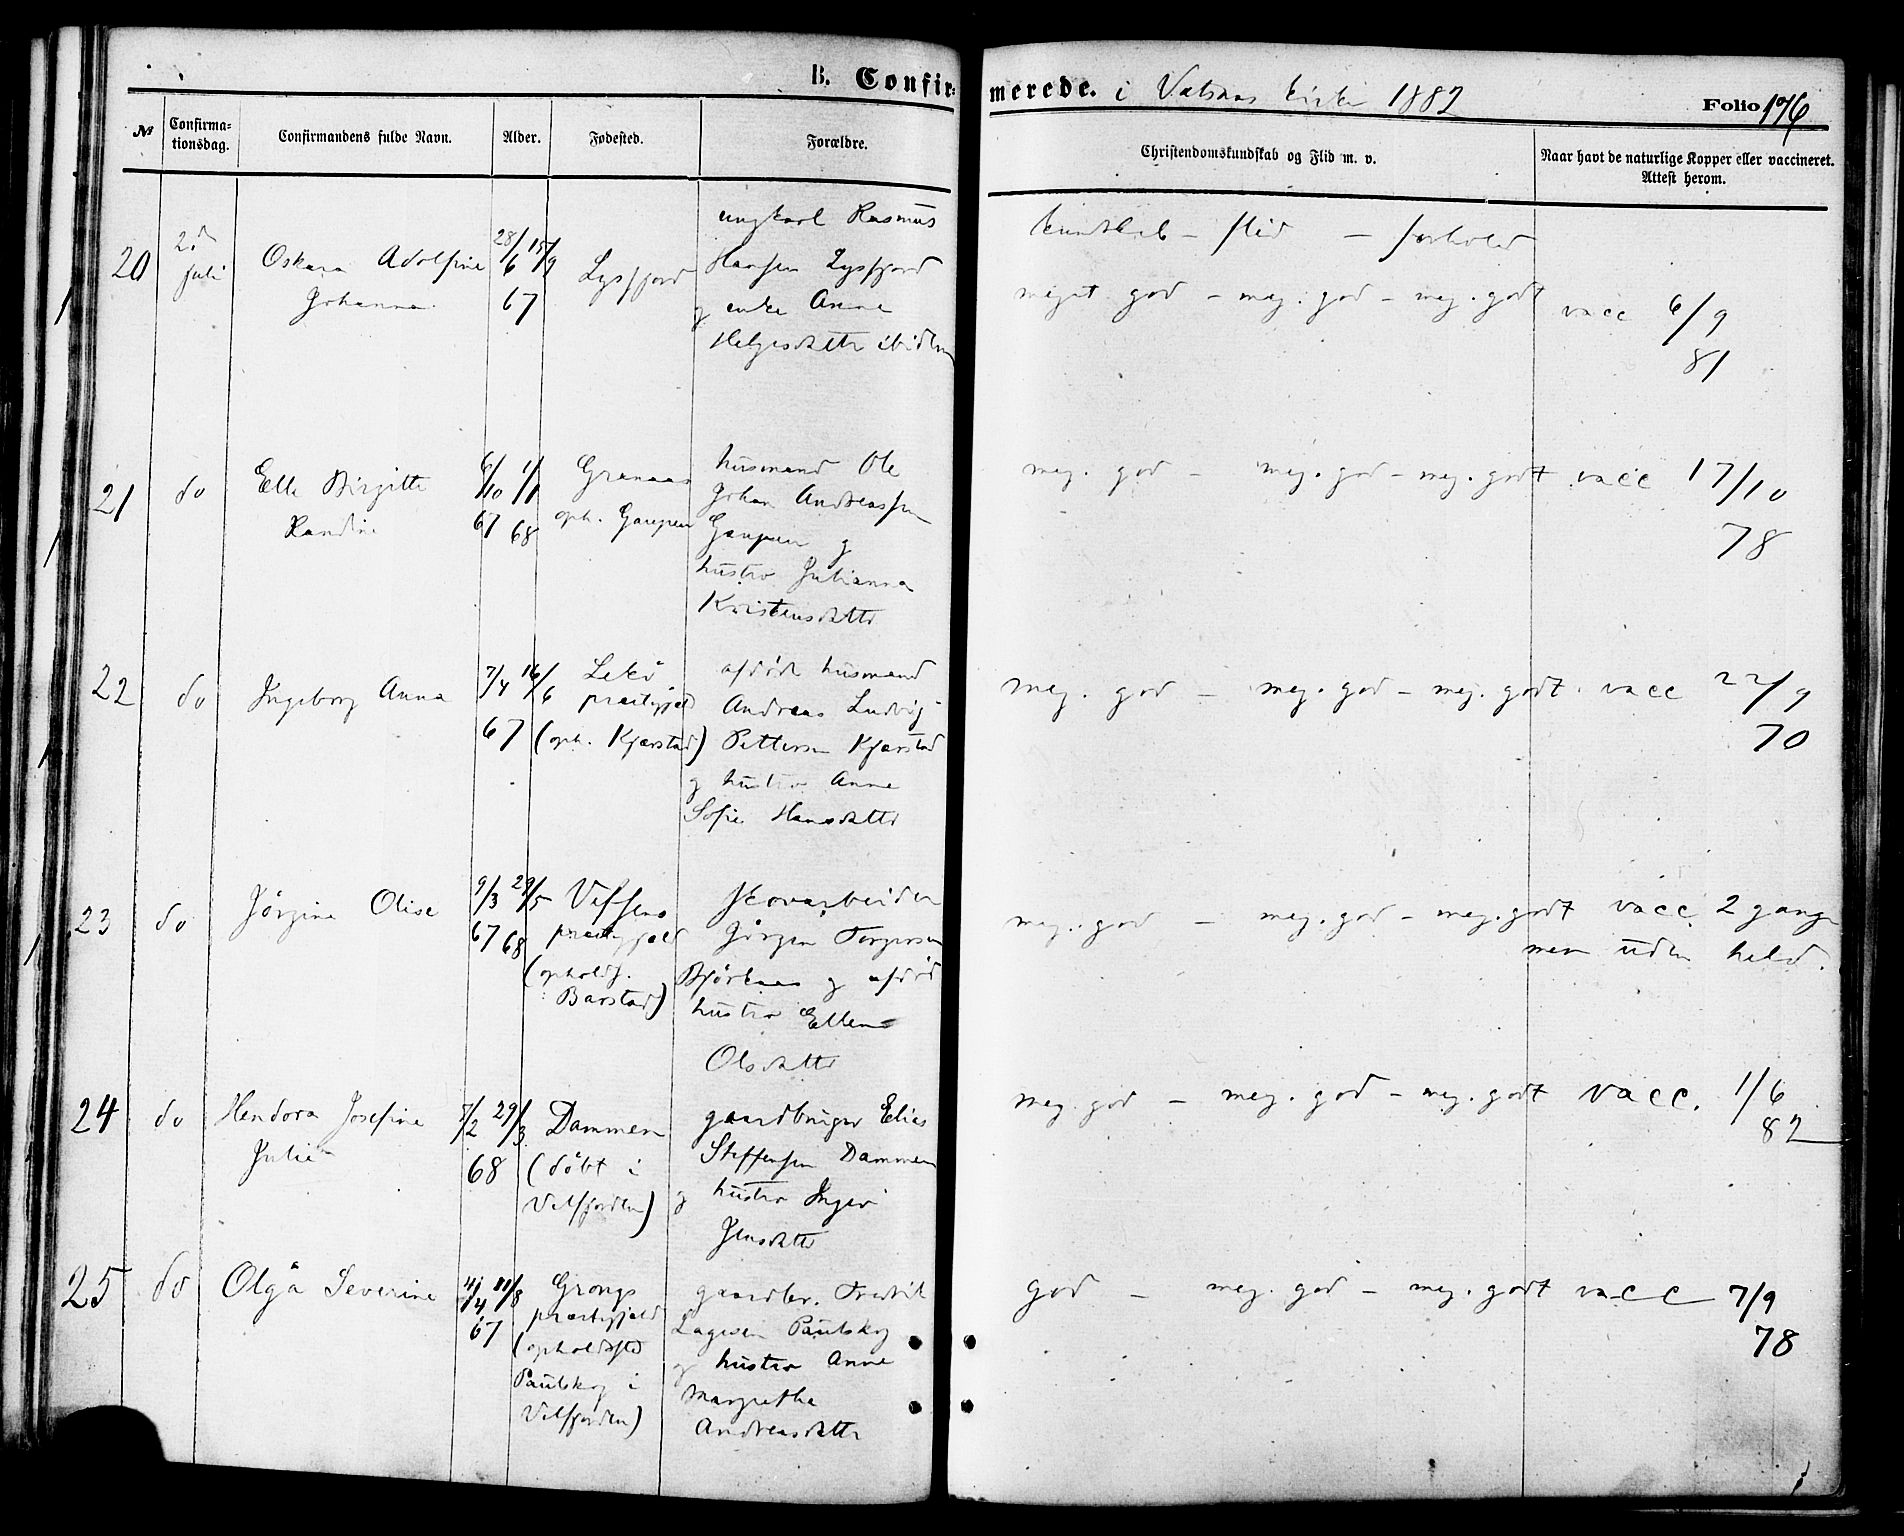 B. Confir=
merede. i Vatsaas kirke 1882
Folio 176
№
Confirma=
tionsdag.
Confirmandens fulde Navn.
Alder.
Fødested.
Forældre.
Christendomskundskab og Flid m. v.
Naar havt de naturlige Kopper eller vaccineret.
Attest herom.
kundskab – flid – forhold
20
2d
juli
Oskara Adolfine
Johanna
28/6 15/9
67
Lysfjord
ungkarl Rasmus
Hansen Lysfjord
og enke Anna
Helgesdatter ibidem
meget god – meg. god – meg. godt
vacc 6/9
81
21
do
Elle Birgitte
Randine
6/10 1/1
67 68
Granaas
oph. Gaupen
husmand Ole
Johan Andreassen
Gaupen og
hustro Julianna
Kristensdatter
meg. god – meg. god – meg. godt
vacc 17/10
78
22
do
Ingeborg Anna
7/4 16/6
67
Lekø
præstegjeld
(oph. Kjærstad)
afdøde husmand
Andreas Ludvig
Pettersen Kjærstad
og hustro Anne
Sofie Hansdatter
meg. god – meg. god – meg. godt
vacc 22/9
70
23
do
Jørgine Olise
9/3 29/5
67 68
Vefsens
præstegjeld
(opholdss.
Barstad)
skovarbeider
Jørgen Torgersen
Bjørkaas og afdød
hustro Ellen
Olsdatter
meg. god – meg. god – meg. godt
vacc 2 gange
men uden held.
24
do
Hendora Josefine
Julie
7/2 29/3
68
Dammen
(døbt i
Velfjorden)
gaardbruger Elias
Steffensen Dammen
og hustro Inger
Jensdatter
meg. god – meg. god – meg. godt
vacc. 1/6
82
25
do
Olga Severine
4/4 11/8
67
Grongs
præstegjeld
(opholdssted
Paulskog i
Velfjorden)
gaardbr. Fredrik
Lagesen Paulskog
og hustro Anne
Margretha
Andreasdatter
god – meg. god – meg. godt
vacc 7/9
78